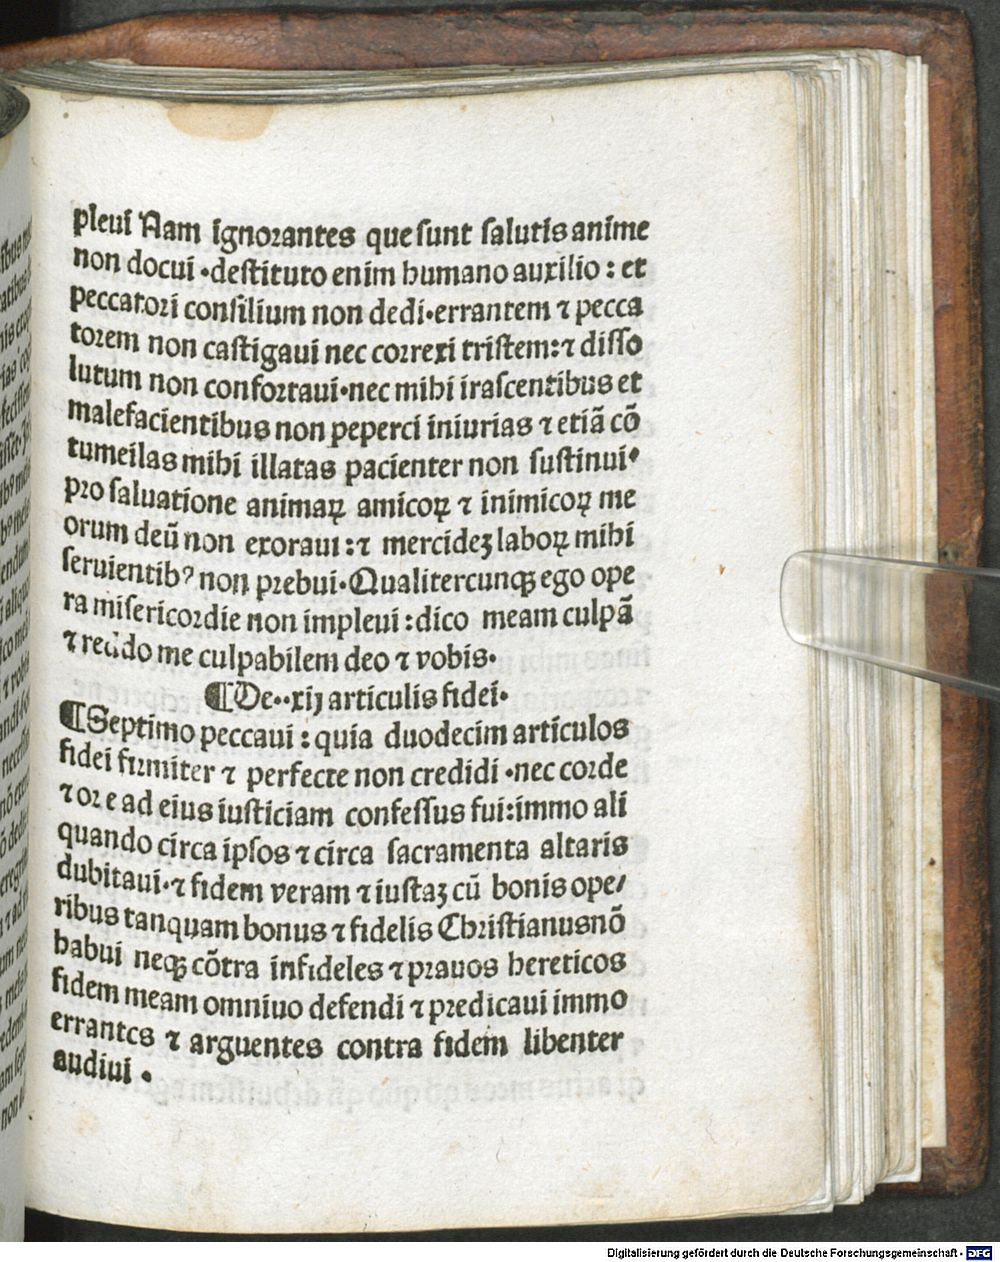 pleui Nam ignorantes que sunt salutis anime
non docui .destituto enim humano auxilio : et
peccatori consilium non dedi.errantem ⁊ pecca
torem non castigaui nec correxi tristem:⁊ disso
lutum non confortaui.nec mihi irascentibus et
malefacientibus non peperci iniurias ⁊ etiā cō
tumeilas mihi illatas pacienter non sustinui.
pro saluatione animaꝝ amicoꝝ ⁊ inimicoꝝ me
orum deū non exoraui :⁊ mercideꝫ laboꝝ mihi
seruientibꝰ non prebui.Qualitercunqꝫ ego ope
ra misericordie non impleui :dico meam culpā
⁊ reddo me culpabilem deo ⁊ vobis.
¶De..xij articulis fidei.
¶Septimo peccaui : quia duodecim articulos
fidei firmiter ⁊ perfecte non credidi .nec corde
⁊ ore ad eius iusticiam confessus fui:immo ali
quando circa ipsos ⁊ circa sacramenta altaris
dubitaui.⁊ fidem veram ⁊ iustaꝫ cū bonis ope/
ribus tanquam bonus ⁊ fidelis Christianus nō
habui neqꝫ cōtra infideles ⁊ prauos hereticos
fidem meam omnivo defendi ⁊ predicaui immo
errantes ⁊ arguentes contra fidem libenter
audiui .
Digitalisierung gefördert durch die Deutsche Forschungsgemeinschaft - DFG